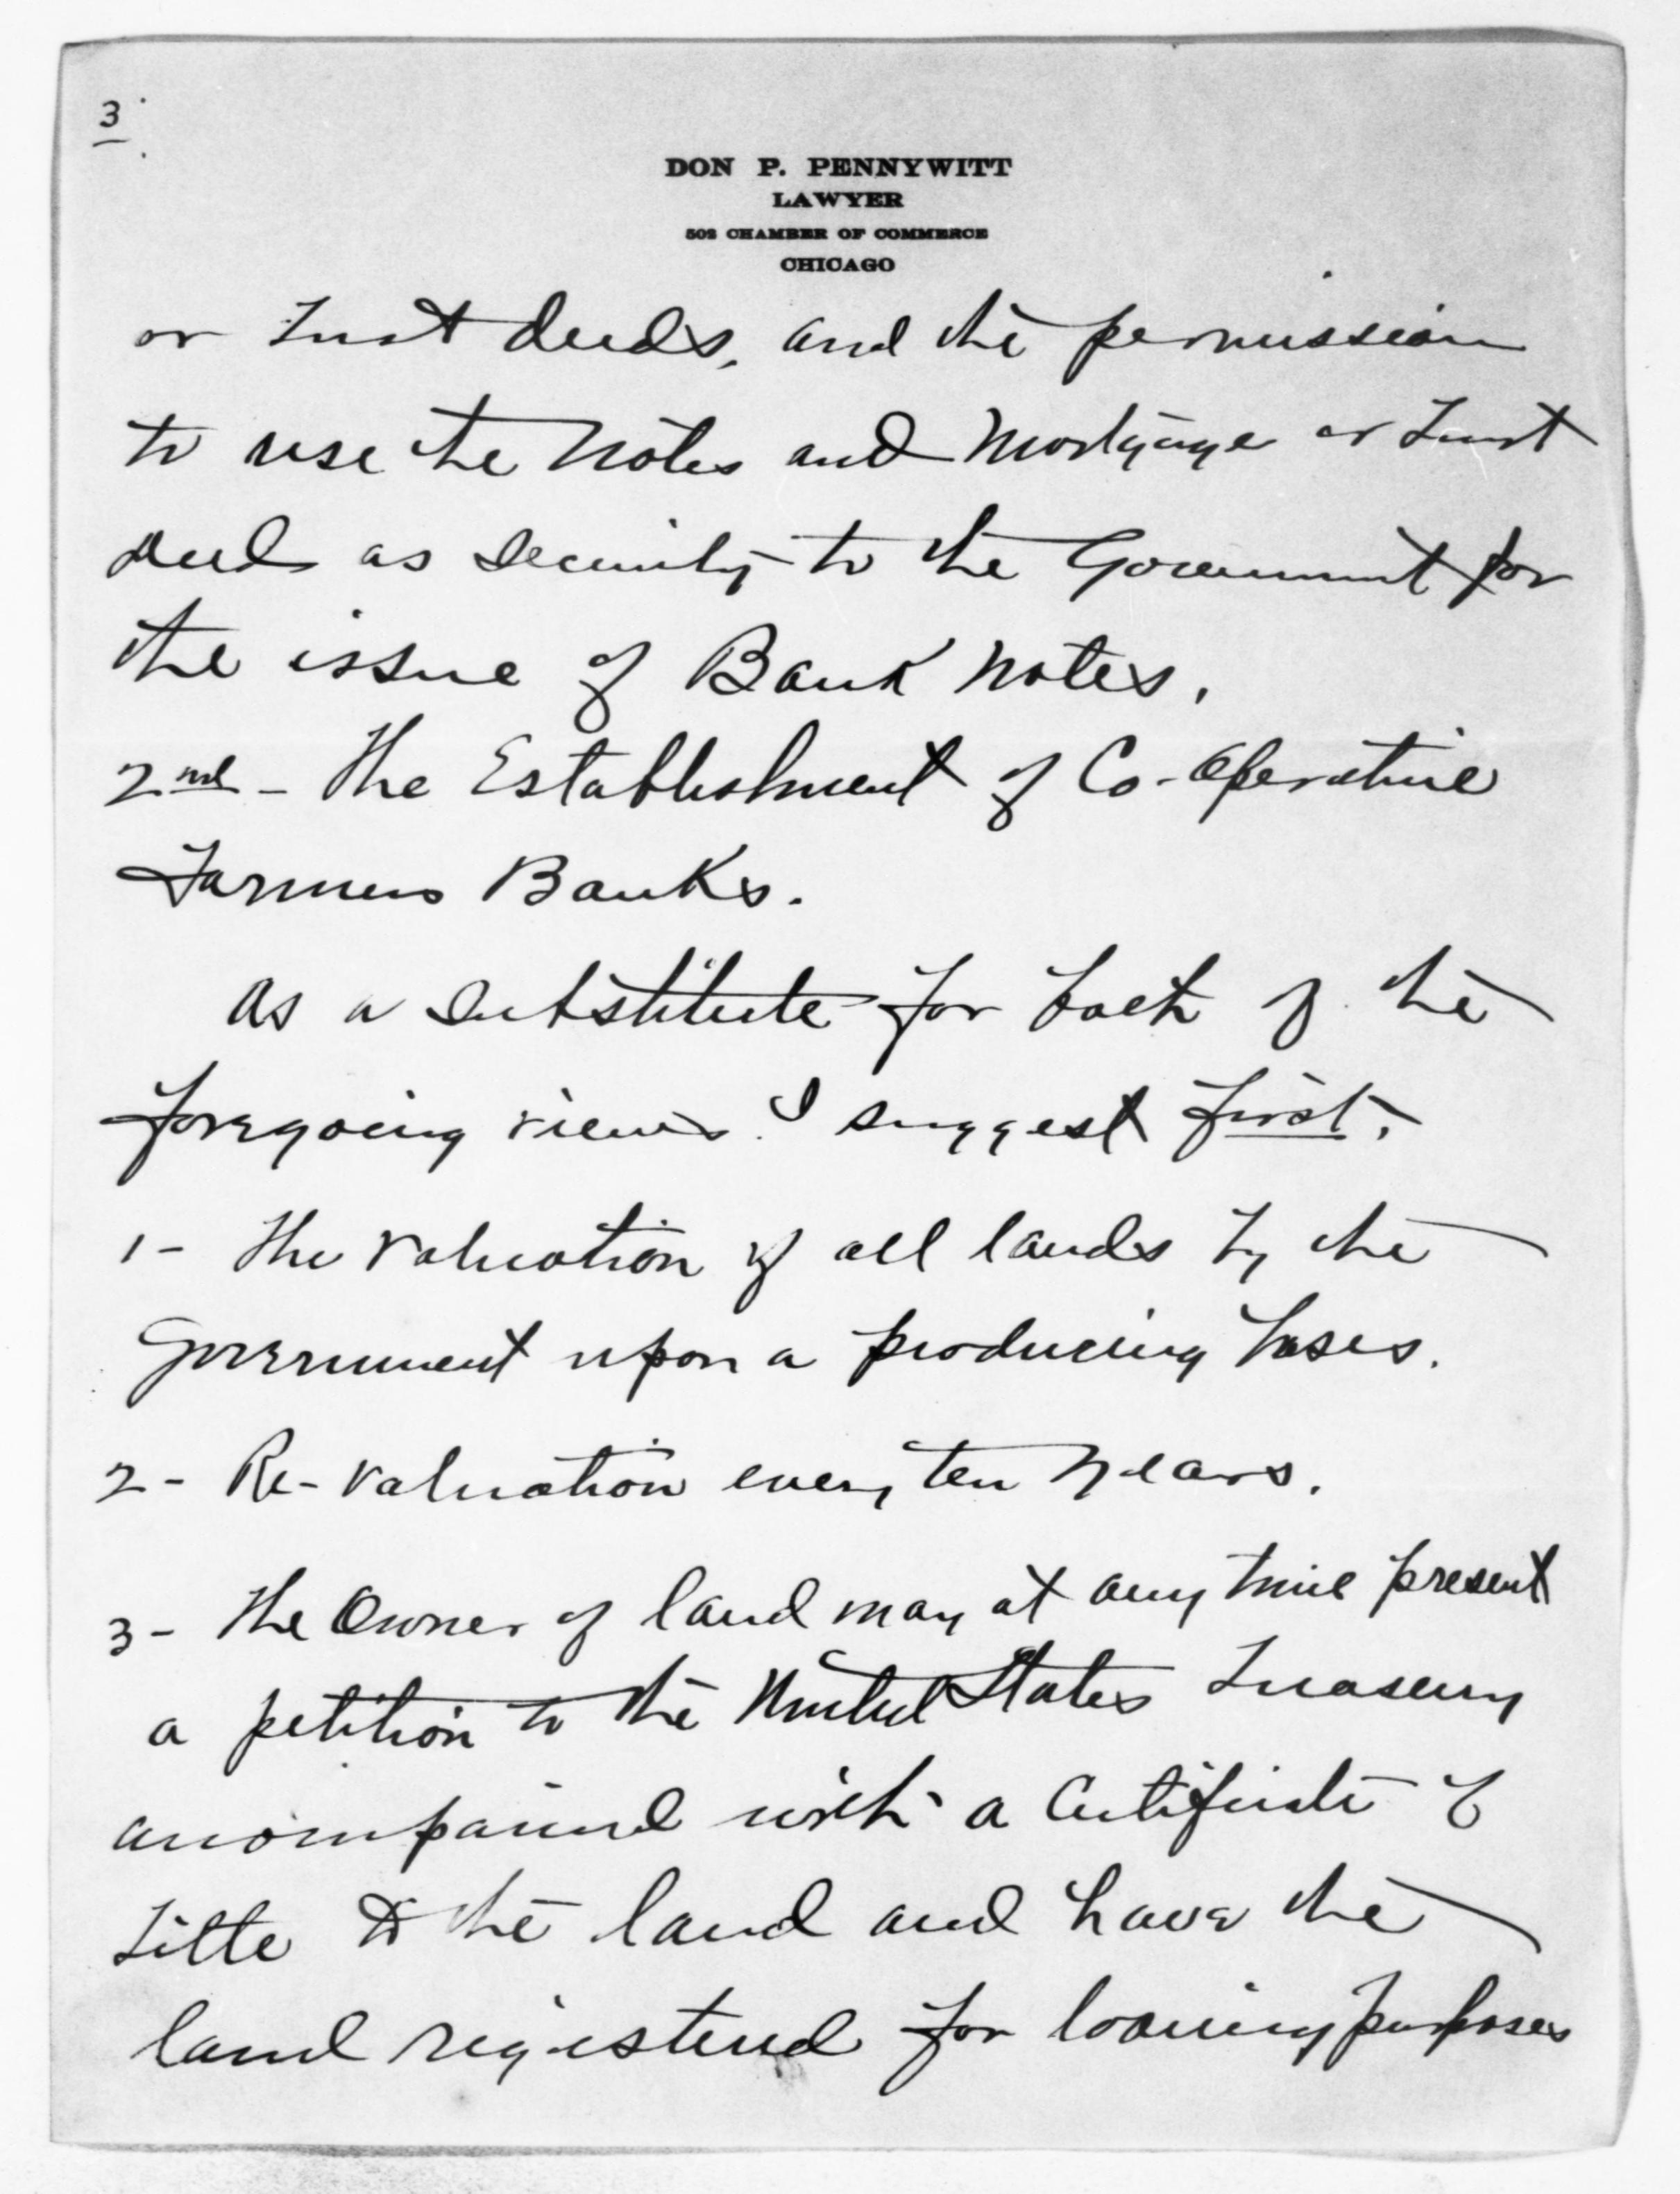 3
DON P. PENNYWITT
LAWYER
502 CHAMBER OF COMMERCE
CHICAGO
or trust deeds, and the permission
to use the Notes and Mortgage or trust
deeds as security to the Government for
the issue of Bank notes.
2nd - The Establishment of Co-operative
Farmers Banks.
As a substitute for both of the
foregoing views I suggest first,
1- The valuation of all lands by the
Government upon a producing bases.
2- Re-valuation every ten years.
3- The Owner of land may at any time present
a petition to the United States Treasury
accompanied with a Certificate of
title to the land and have the
land registered for loaning purposes